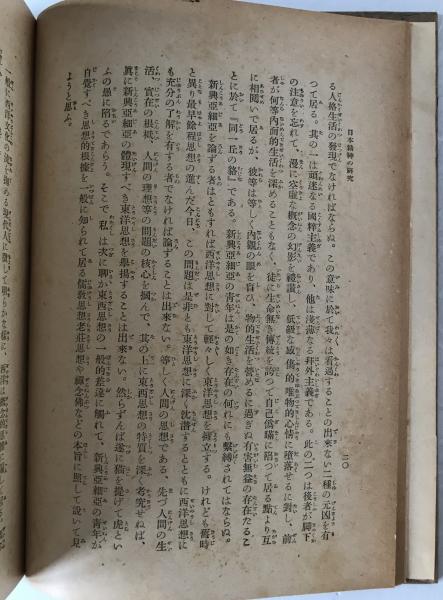 日本精神の研究
二〇
る人格生活の發現でなければならぬ。この意味に於て我々は看過することの出來ない二種の元凶を有
つて居る。其の一は頑迷なる國粹主義であり、他は淺薄なる拜外主義である。此の二つは後者が脚下
の注意を忘れて、漫に空虚な概念の幻影を禮讃し、低級な感傷的唯物的心情に墮落せるに對し、前
者が何等内面的生活を深めることもなく、徒に生命無き傳統を誇つて自己僞瞞に陷つて居る點より互
に相鬩いで居るが、彼等は等しく内觀の眼を盲ひ、物的生活を營めるに過ぎぬ有害無益の存在たるこ
とに於て『同一丘の貉』である。新興亞細亞の青年は是の如き存在の何れにも繫縛されてはならぬ。
新興亞細亞を論ずる者はともすれば西洋思想に對して輕々しく東洋思想を樹立する。けれども舊時
と異り最早餘程思想の進んだ今日、この問題は是非とも東洋思想に深く沈潛するとともに西洋思想に
も充分の了解を有する者でなければ論ずることは出來ない。等しく人間の思想である、先づ人間の生
活、實在の根柢、人間の理想等の問題の核心を摑んで、其の上に東西思想の特質を深く考究せねば、
眞に新興亞細亞の體現すべき東洋思想を擧揚することは出來ない。然らずんば遂に猫を提げて虎とい
ふの愚に陷るであらう。そこで私は次に聊か東西思想の一般的差違に觸れて、新興亞細亞の青年が
自覺すべき思想的根據を一般に知られて居る儒教思想老莊思想や禪念佛などの本旨に照して說いて見
ようと思ふ。